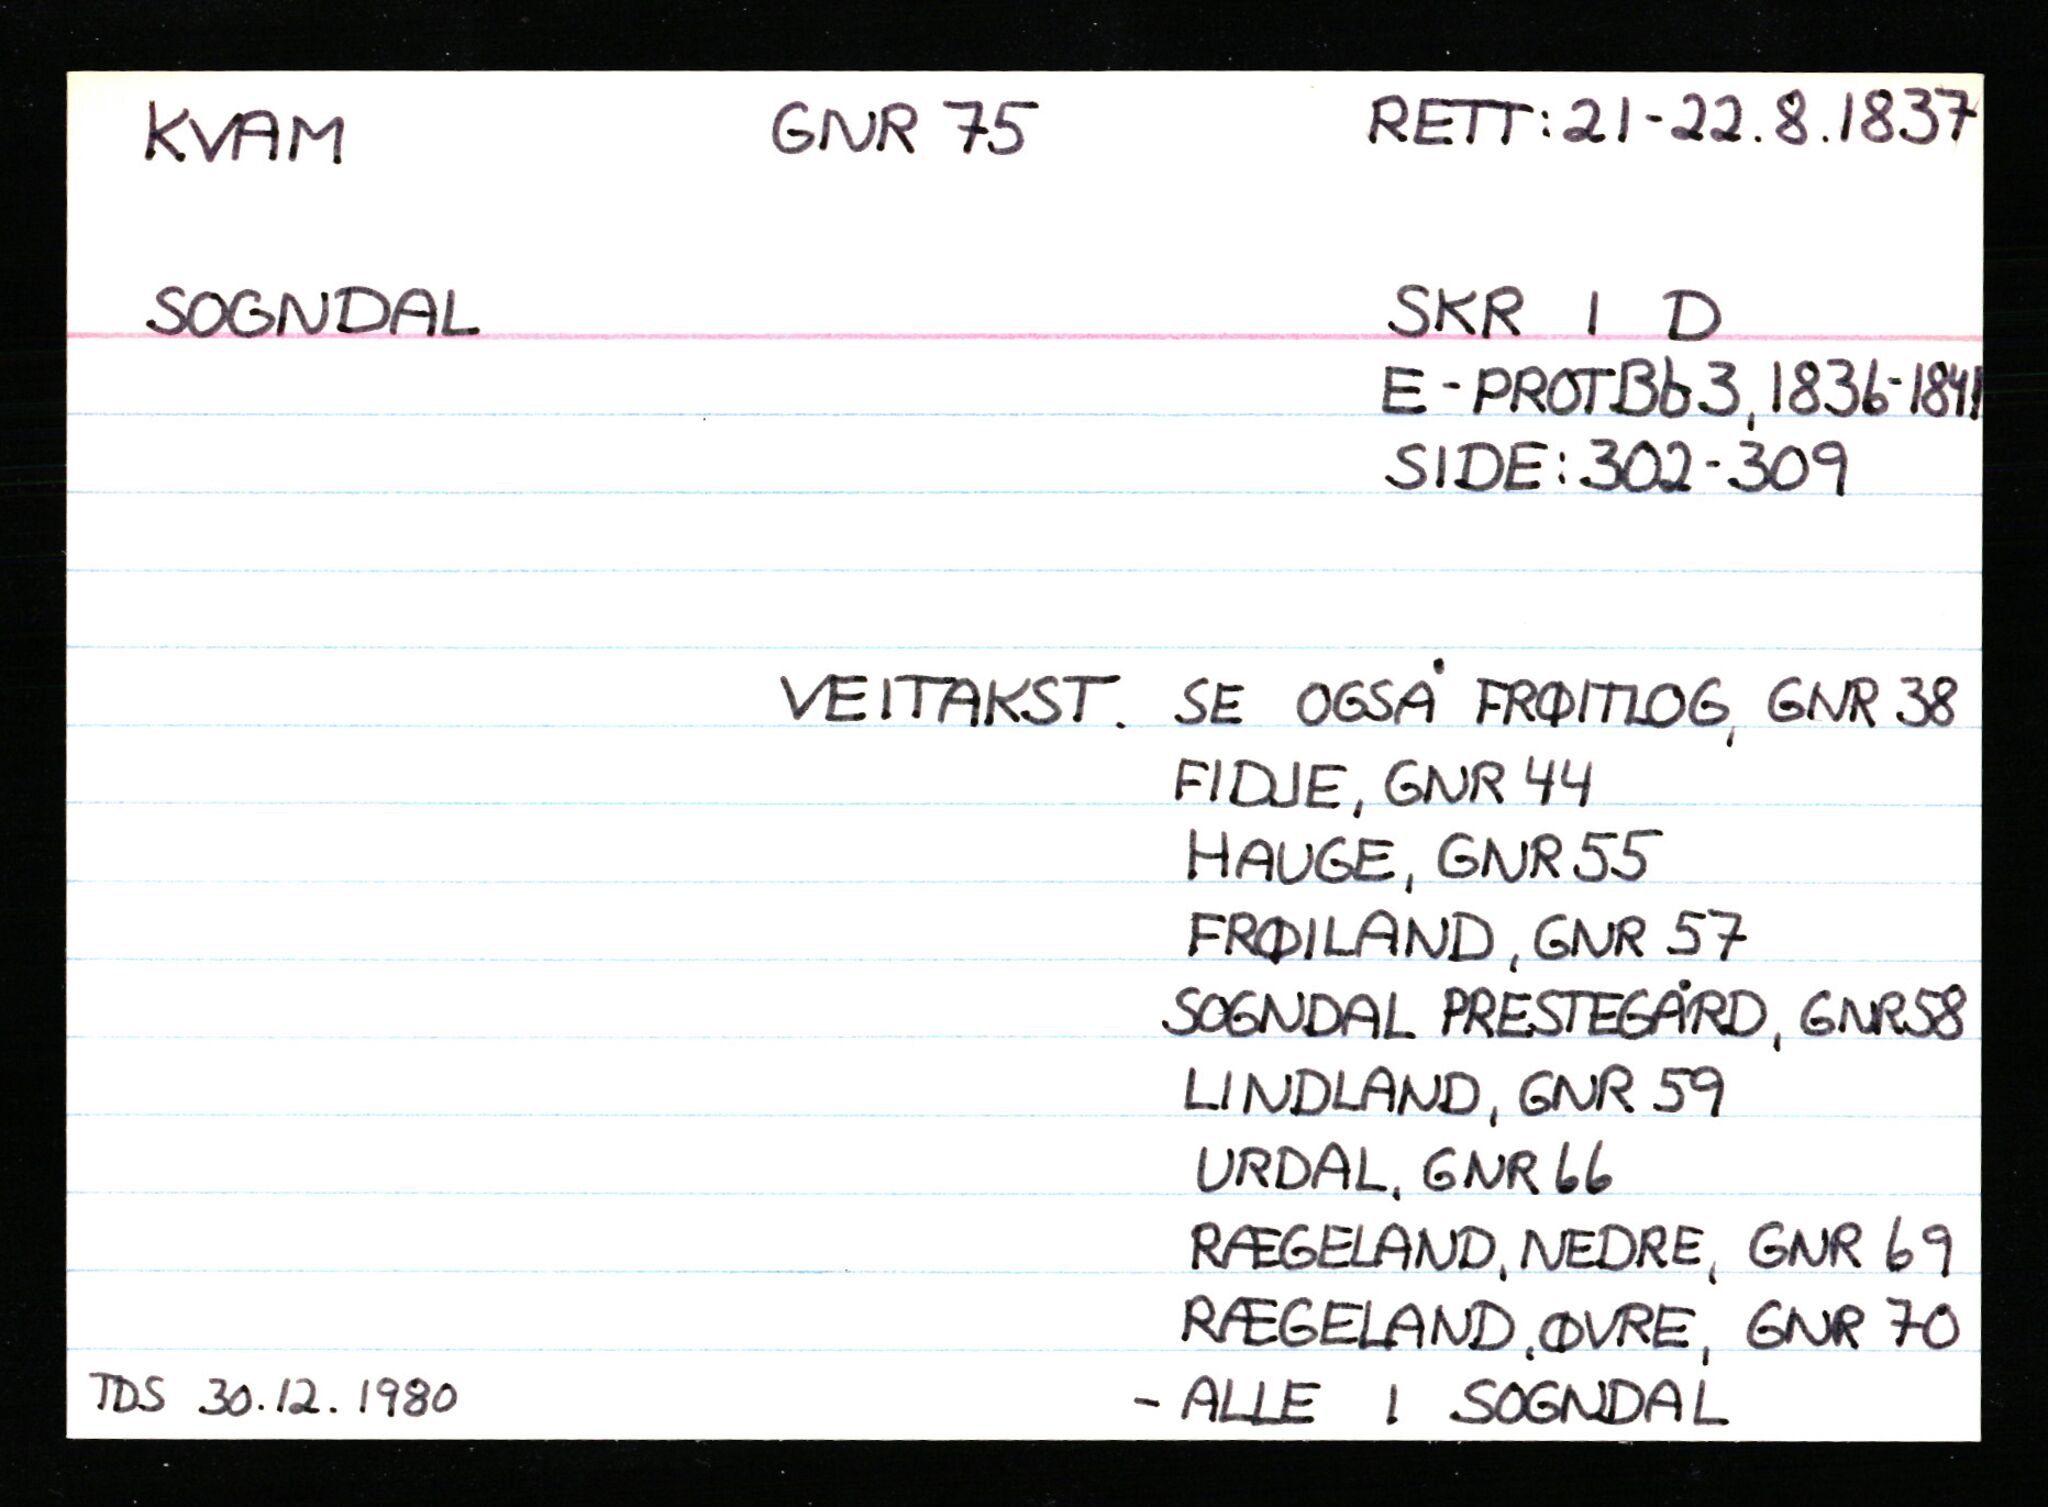 KVAM GNR 75 RETT: 21-22.8.1837
SOGNDAL SKR I D
E-PROT Bb 3, 1836-1841
SIDE: 302-309
VEITAKST. SE OGSÅ FRØITLOG, GNR 38
FIDJE, GNR 44
HAUGE, GNR 55
FRØILAND, GNR 57
SOGNDAL PRESTEGÅRD, GNR 58
LINDLAND, GNR 59
URDAL, GNR 66
RÆGELAND, NEDRE, GNR 69
RÆGELAND, ØVRE, GNR 70
TDS 30.12.1980 - ALLE I SOGNDAL